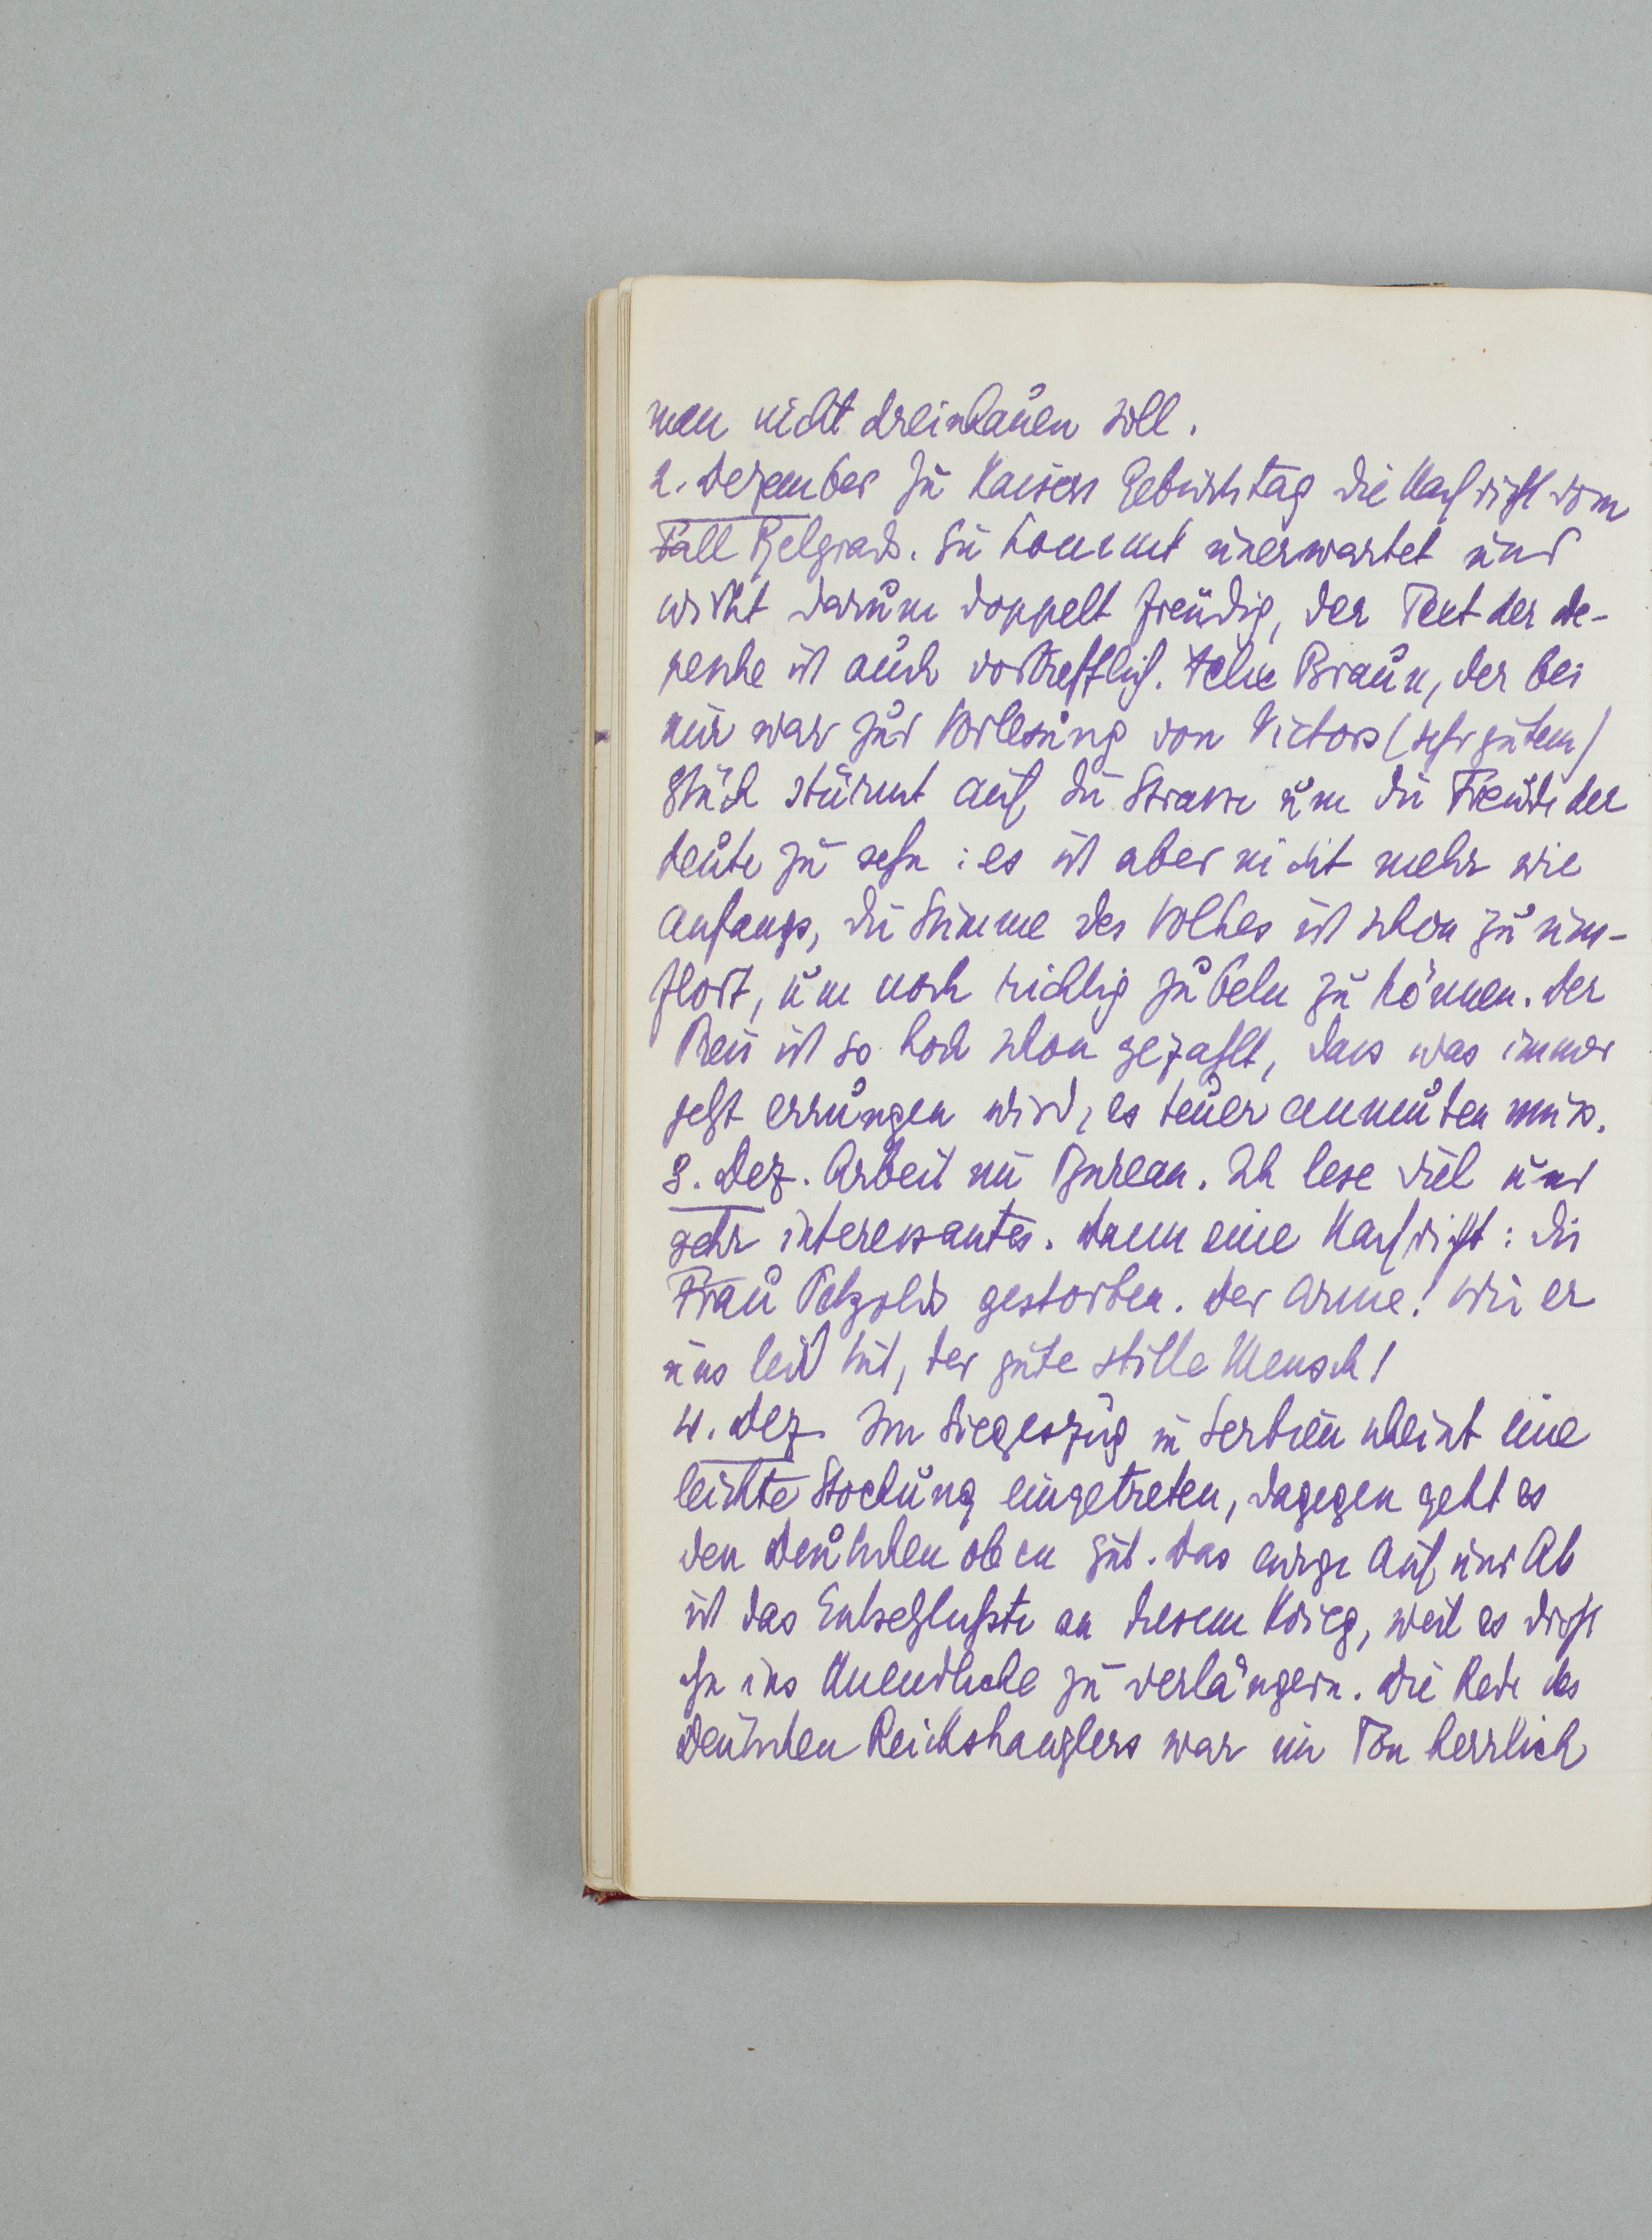 man nicht dreinhauen soll.
2. Dezember Zu Kaisers Geburtstag die Nachricht vom
Fall Belgrads. Sie kommt unerwartet und
wirkt darum doppelt freudig, der Text der De-
pesche ist auch vortrefflich. Felix Braun, der bei
mir war zur Vorlesung von Victors (sehr gutem)
Stück stürmt auf die Strasse um die Freude der
Leute zu sehn: es ist aber nicht mehr wie
Anfangs, die Stimme des Volkes ist schon zu um-
flort, um noch richtig jubeln zu können. Der
Preis ist so hoch schon gezahlt, dass was immer
jetzt errungen wird, es teuer anmuten muss.
3. Dez. Arbeit im Bureau. Ich lese viel und
sehr interessantes. Dann eine Nachricht: die
Frau Petzolds gestorben. Der Arme! Wie er
uns leid tut, der gute stille Mensch!
4. Dez. Im Siegeszug in Serbien scheint eine
leichte Stockung eingetreten, dagegen geht es
den Deutschen oben gut. Das ewige Auf und Ab
ist das Entsetzlichste an diesem Krieg, weil es droht
ihn ins Unendliche zu verlängern. Die Rede des
Deutschen Reichskanzlers war im Ton herrlich